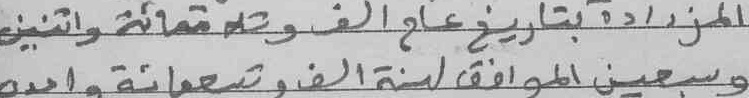 المزدادة بتاريخ عام ألف وثلاثمائة واثنين
وسبعين الموافق لسنة ألف وتسعمائة واحد